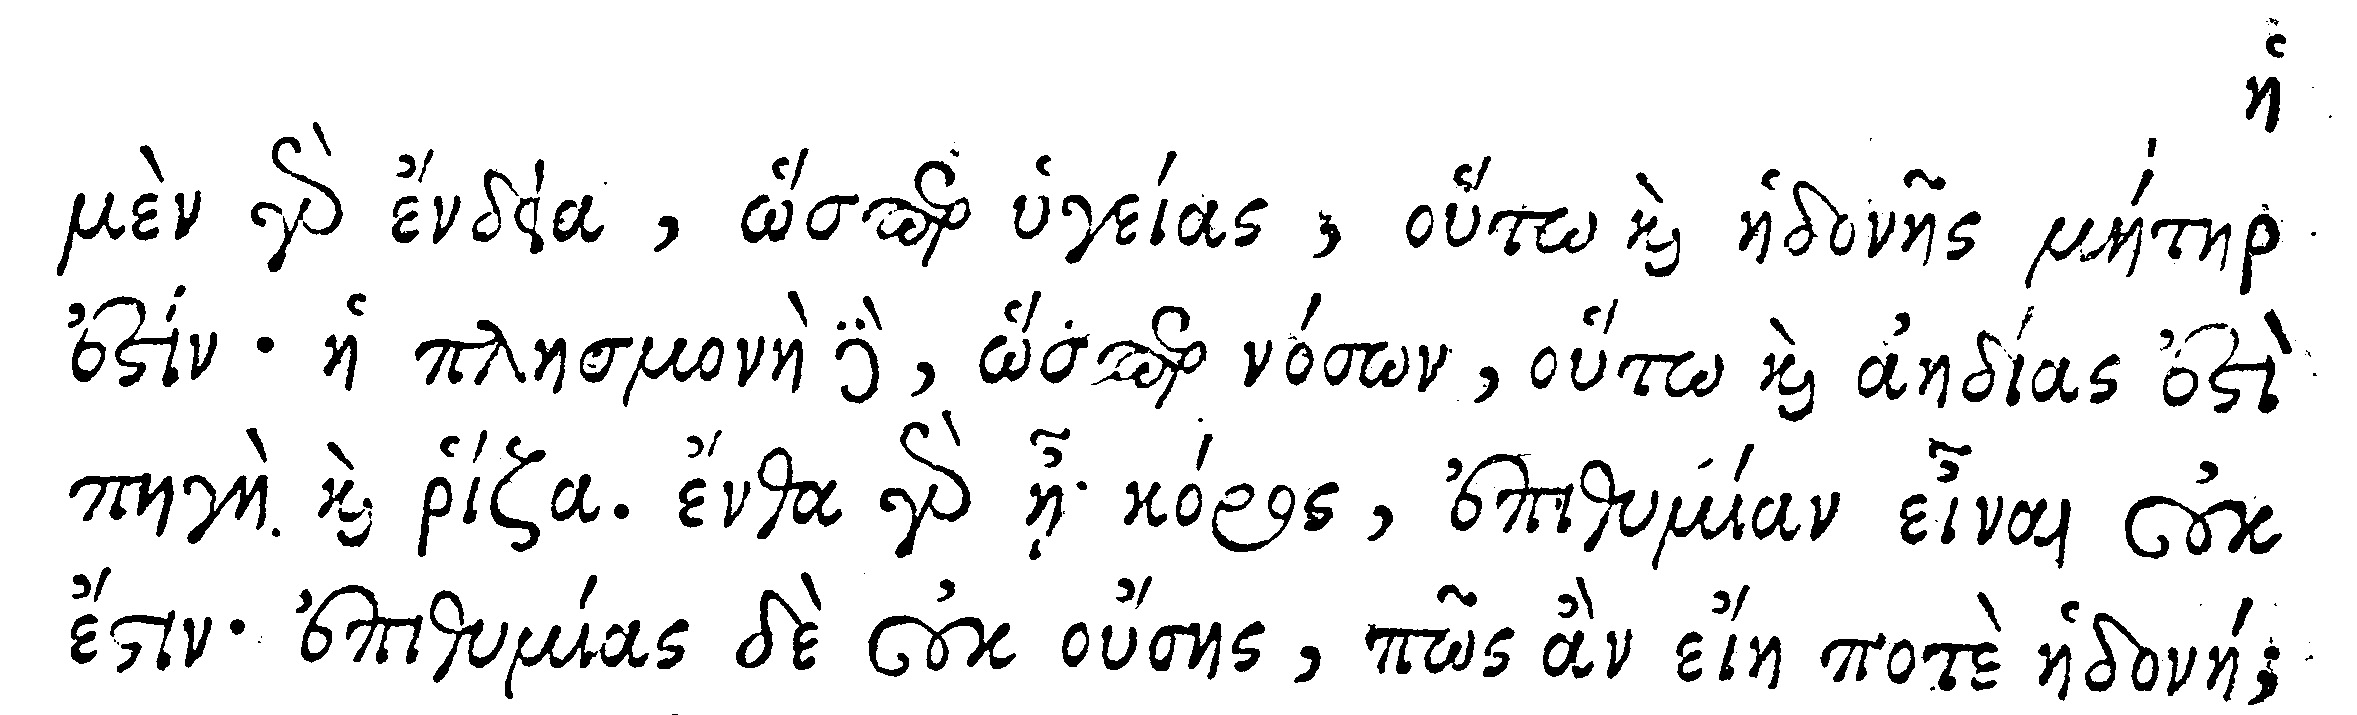 ἡ
μὲν γὰρ ἔνδεια, ὥσπερ ὑγείας, οὕτω καὶ ἡδονῆς μήτηρ
ἐστίν· ἡ πλησμονὴ δὲ, ὥσπερ νόσων, οὕτω καὶ ἀηδίας ἐστὶ
πηγὴ καὶ ῥίζα. ἔνθα γὰρ ᾖ κόρος, ἐπιθυμίαν εἶναι οὐκ
ἔστιν· ἐπιθυμίας δὲ οὐκ οὔσης, πῶς ἂν εἴη ποτὲ ἡδονή;